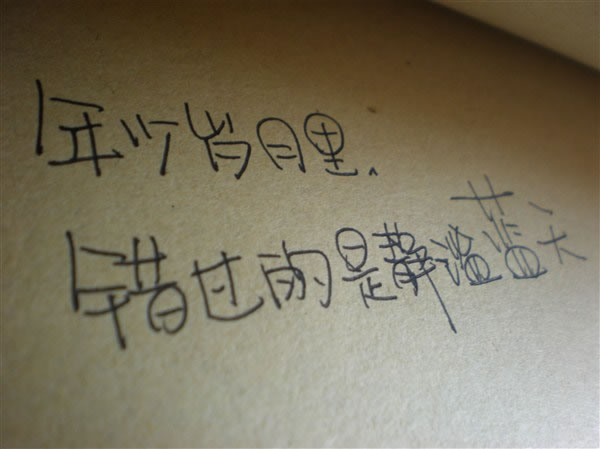 年少岁月里、
错过的是静谧蓝天